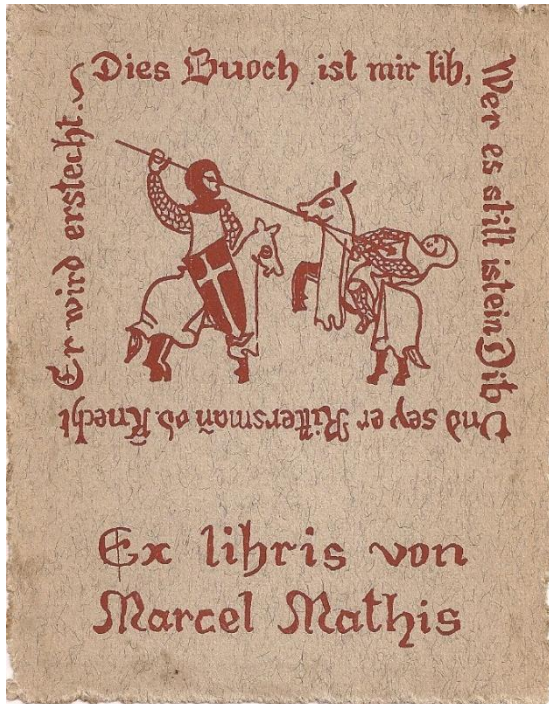 Dies Buoch ist mir lib,
Wer es stilt ist ein Dib
Und sey er Rittersmañ od. Knecht
Er wird erstecht.
Ex libris von
Marcel Mathis